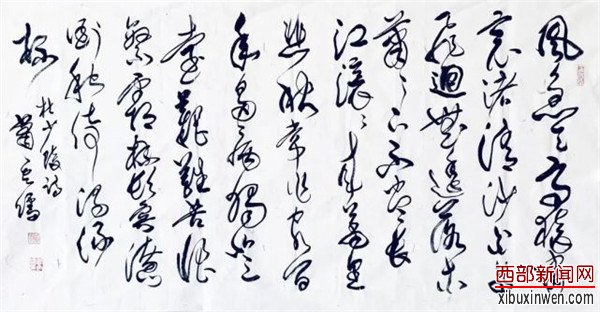 風急天高猿嘯
哀渚清沙白鳥
飛迴無邊落木
蕭蕭下不盡長
江滾滾來萬里
悲秋常作客百
年多病獨登
臺艱難苦恨
繁霜鬢潦
倒新停濁酒
杯
杜少陵詩
蕭雲儒
西部新闻网
xibuxinwen.com